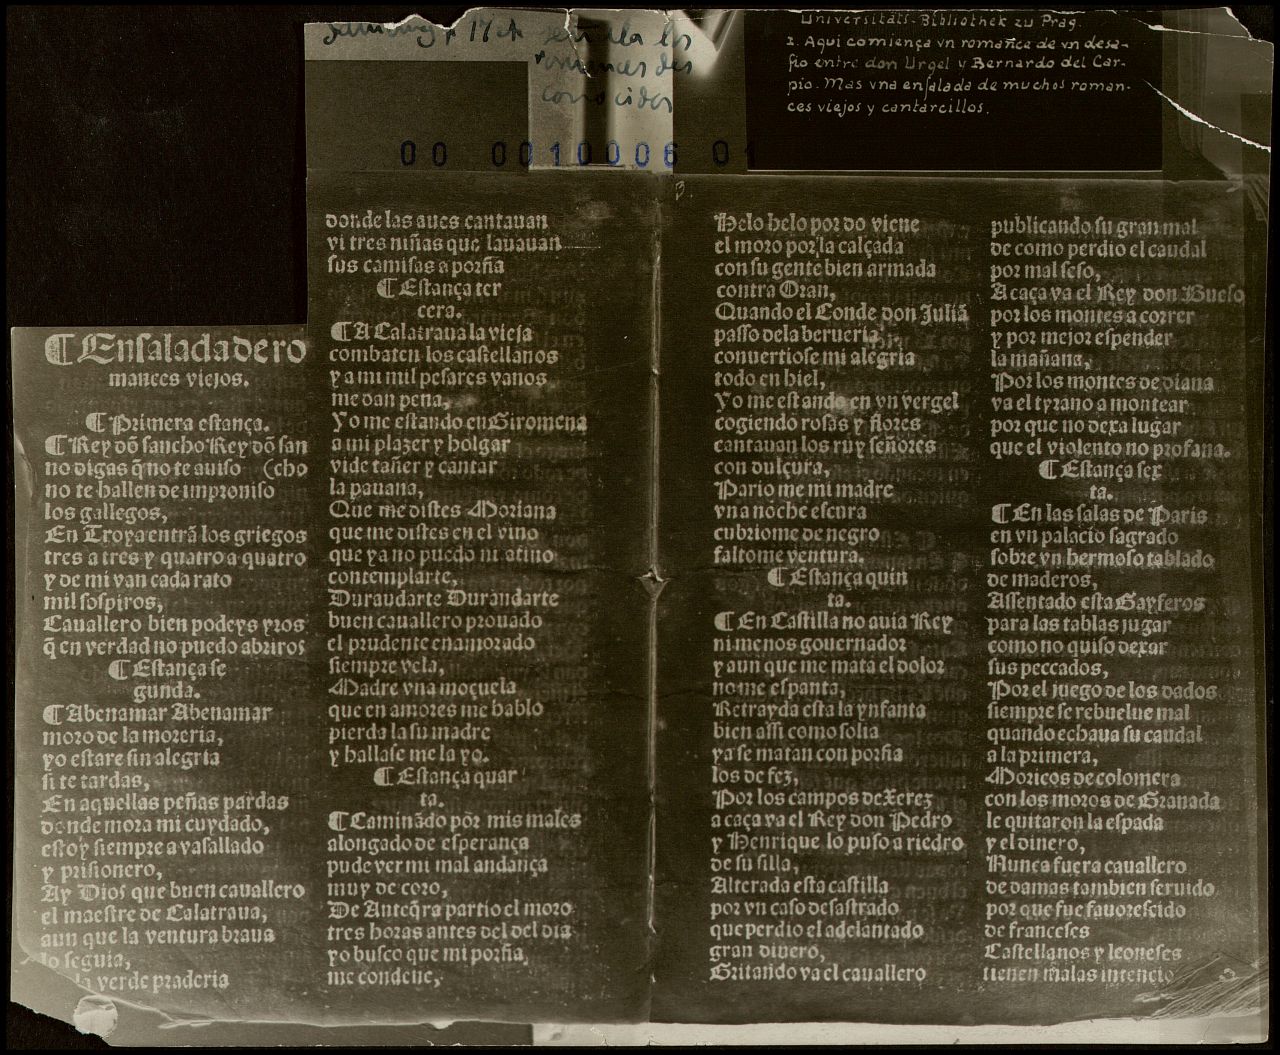 señala los
romances des
conocidos
Universitäts-Bibliothek zu Prag.
1. Aqui comiença vn romance de vn desa-
fio entre don Urgel y Bernardo del Car-
pio. Mas vna ensalada de muchos roman-
ces viejos y cantarcillos.
00 0010006 01
3.
¶ Ensalada de ro
mances viejos.
¶ Primera estança.
¶ Rey dõ sancho Rey dõ san
no digas q̃ no te auiso (cho
no te hallen de improuiso
los gallegos,
En Troya entrã los griegos
tres a tres y quatro a quatro
y de mi van cada rato
mil sospiros,
Cauallero bien podeys yros
q̃ en verdad no puedo abriros
¶ Estança se
gunda.
¶ Abenamar Abenamar
moro de la moreria,
yo estare sin alegria
si te tardas,
En aquellas peñas pardas
donde mora mi cuydado,
estoy siempre a vasallado
y prisionero,
Ay Dios que buen cauallero
el maestre de Calatraua,
aun que la ventura braua
lo seguia,
la verde praderia
donde las aues cantauan
vi tres niñas que lauauan
sus camisas a porfia
¶ Estança ter
cera.
¶ A Calatraua la vieja
combaten los castellanos
y a mi mil pesares vanos
me dan pena,
Yo me estando en Giromena
a mi plazer y holgar
vide tañer y cantar
la pauana,
Que me distes Moriana
que me distes en el vino
que ya no puedo ni atino
contemplarte,
Durandarte Durandarte
buen cauallero prouado
el prudente enamorado
siempre vela,
Madre vna moçuela
que en amores me hablo
pierda la su madre
y hallase me la yo.
¶ Estança quar
ta.
¶ Caminãdo por mis males
alongado de esperança
pude ver mi mal andança
muy de coro,
De Anteq̃ra partio el moro
tres horas antes del del dia
yo busco que mi porfia,
me condene,
Helo helo por do viene
el moro por la calçada
con su gente bien armada
contra Oran,
Quando el Conde don Juliã
passo dela berueria,
conuertiose mi alegria
todo en hiel,
Yo me estando en vn vergel
cogiendo rosas y flores
cantauan los ruy señores
con dulçura,
Pario me mi madre
vna noche escura
cubriome de negro
faltome ventura.
¶ Estança quin
ta.
¶ En Castilla no auia Rey
ni menos gouernador
y aun que me mata el dolor
no me espanta,
Retrayda esta la ynfanta
bien assi como solia
ya se matan con porfia
los de fez,
Por los campos de Xerez
a caça va el Rey don Pedro
y Henrique lo puso a riedro
de su silla,
Alterada esta castilla
por vn caso desastrado
que perdio el adelantado
gran dinero,
Gritando va el cauallero
publicando su gran mal
de como perdio el caudal
por mal seso,
A caça va el Rey don Bueso
por los montes a correr
y por mejor espender
la mañana,
Por los montes de diana
va el tyrano a montear
por que no dexa lugar
que el violento no profana.
¶ Estança sex
ta.
¶ En las salas de Paris
en vn palacio sagrado
sobre vn hermoso tablado
de maderos,
Assentado esta Gayferos
para las tablas jugar
como no quiso dexar
sus peccados,
Por el juego de los dados
siempre se rebuelue mal
quando echaua su caudal
a la primera,
Moricos de colomera
con los moros de Granada
le quitaron la espada
y el dinero,
Nunca fuera cauallero
de damas tambien seruido
por que fue fauorescido
de franceses
Castellanos y leoneses
tienen malas intencio